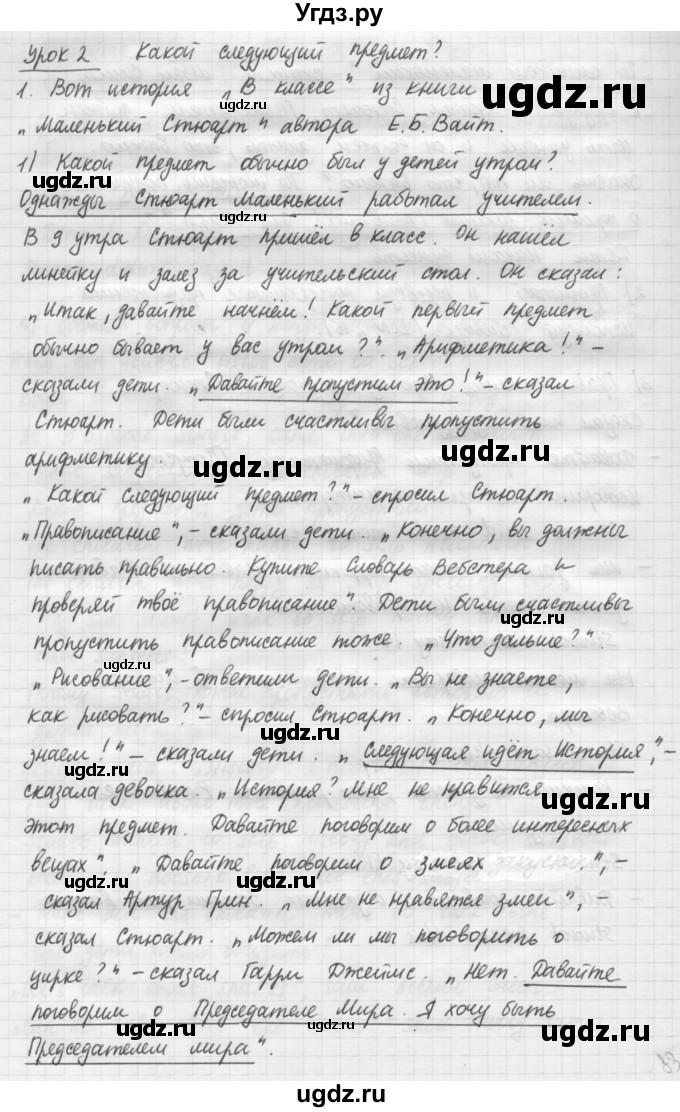 Угдз.ру
Урок 2 Какой следующий предмет?
1. Вот история „В классе" из книги
„Маленький Стюарт" автора Е.Б. Вайт.
1) Какой предмет обычно был у детей утром?
Однажды Стюарт Маленький работал учителем.
В 9 утра Стюарт пришёл в класс. Он нашёл
линейку и залез за учительский стол. Он сказал:
„Итак, давайте начнём! Какой первый предмет
обычно бывает у вас утром?". „Арифметика!" –
сказали дети. „Давайте пропустим это!" – сказал
Стюарт. Дети были счастливы пропустить
арифметику.
„Какой следующий предмет?" – спросил Стюарт.
„Правописание", – сказали дети. „Конечно, вы должны
писать правильно. Купите словарь Вебстера и
проверяй твоё правописание". Дети были счастливы
пропустить правописание тоже. „Что дальше?"
„Рисование", – ответили дети. „Вы не знаете,
как рисовать?" – спросил Стюарт. „Конечно, мы
знаем!" – сказали дети. „Следующая идёт История", –
сказала девочка. „История? Мне не нравится
этот предмет. Давайте поговорим о более интересных
вещах". „Давайте поговорим о змеях", –
сказал Артур Грин. „Мне не нравятся змеи", –
сказал Стюарт. „Можем ли мы поговорить о
цирке?" – сказал Гарри Джеймс. „Нет. Давайте
поговорим о Председателе Мира. Я хочу быть
Председателем мира".
ugdz.ru